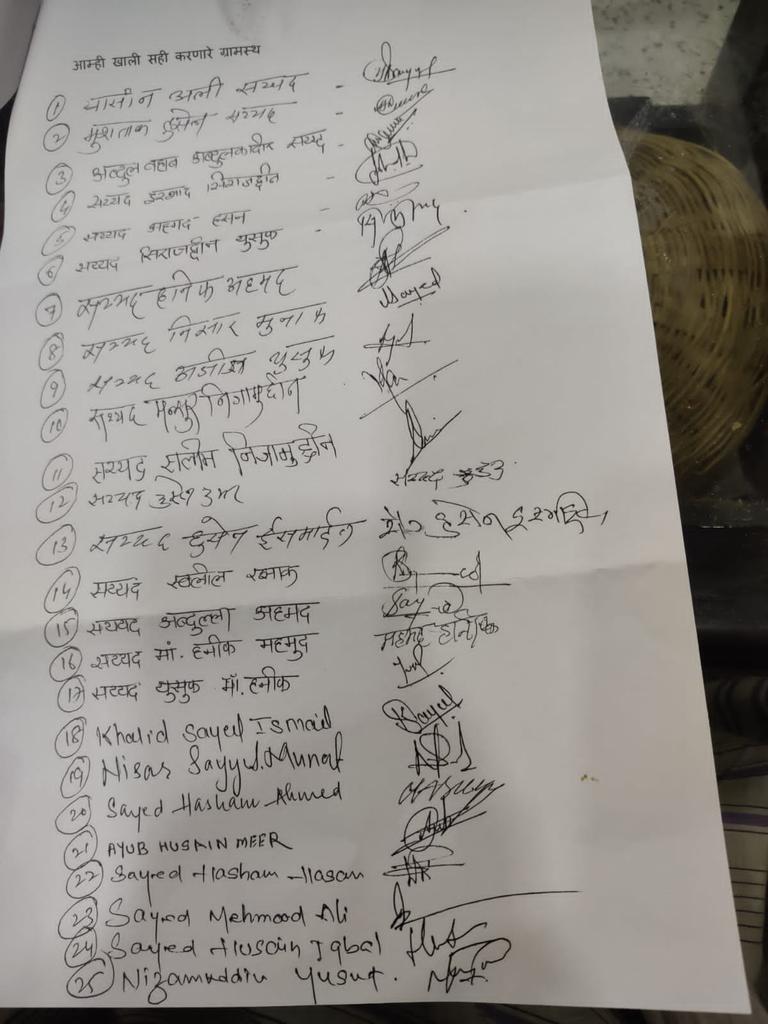 आम्ही खाली सही करणारे ग्रामस्थ
① यासीन अली सय्यद -
② मुशताक हुसेन सय्यद -
③ अब्दुल वहाब अब्दुलकादीर सय्यद -
④ सय्यद इरशाद सिराजद्दीन -
⑤ सय्यद अहमद हसन -
⑥ सय्यद सिराजद्दीन युसुफ -
⑦ सय्यद हानिफ अहमद
⑧ सय्यद निसार मुनाफ Sayed
⑨ सय्यद अजीज युसुफ
⑩ सय्यद मन्सुर निजामुद्दीन
⑪ सय्यद सलीम निजामुद्दीन
⑫ सय्यद हुसेन उमर सय्यद
⑬ सय्यद हुसेन ईसमाईल हुसेन
⑭ सय्यद खलील रझाक
⑮ सय्यद अब्दुल्ला अहमद
⑯ सय्यद मॉ. हनीफ महमुद महमद हानिफ
⑰ सय्यद युसुफ मॉ. हनीफ
⑱ Khalid Sayed Ismail Sayed
⑲ Nisar Sayyed Munaf
⑳ Sayed Hasham Ahmed
㉑ AYUB HUSAIN MEER
㉒ Sayed Hasham Hasan
㉓ Sayed Mehmood Ali
㉔ Sayed Husain Iqbal
㉕ Nizamuddin Yusuf.